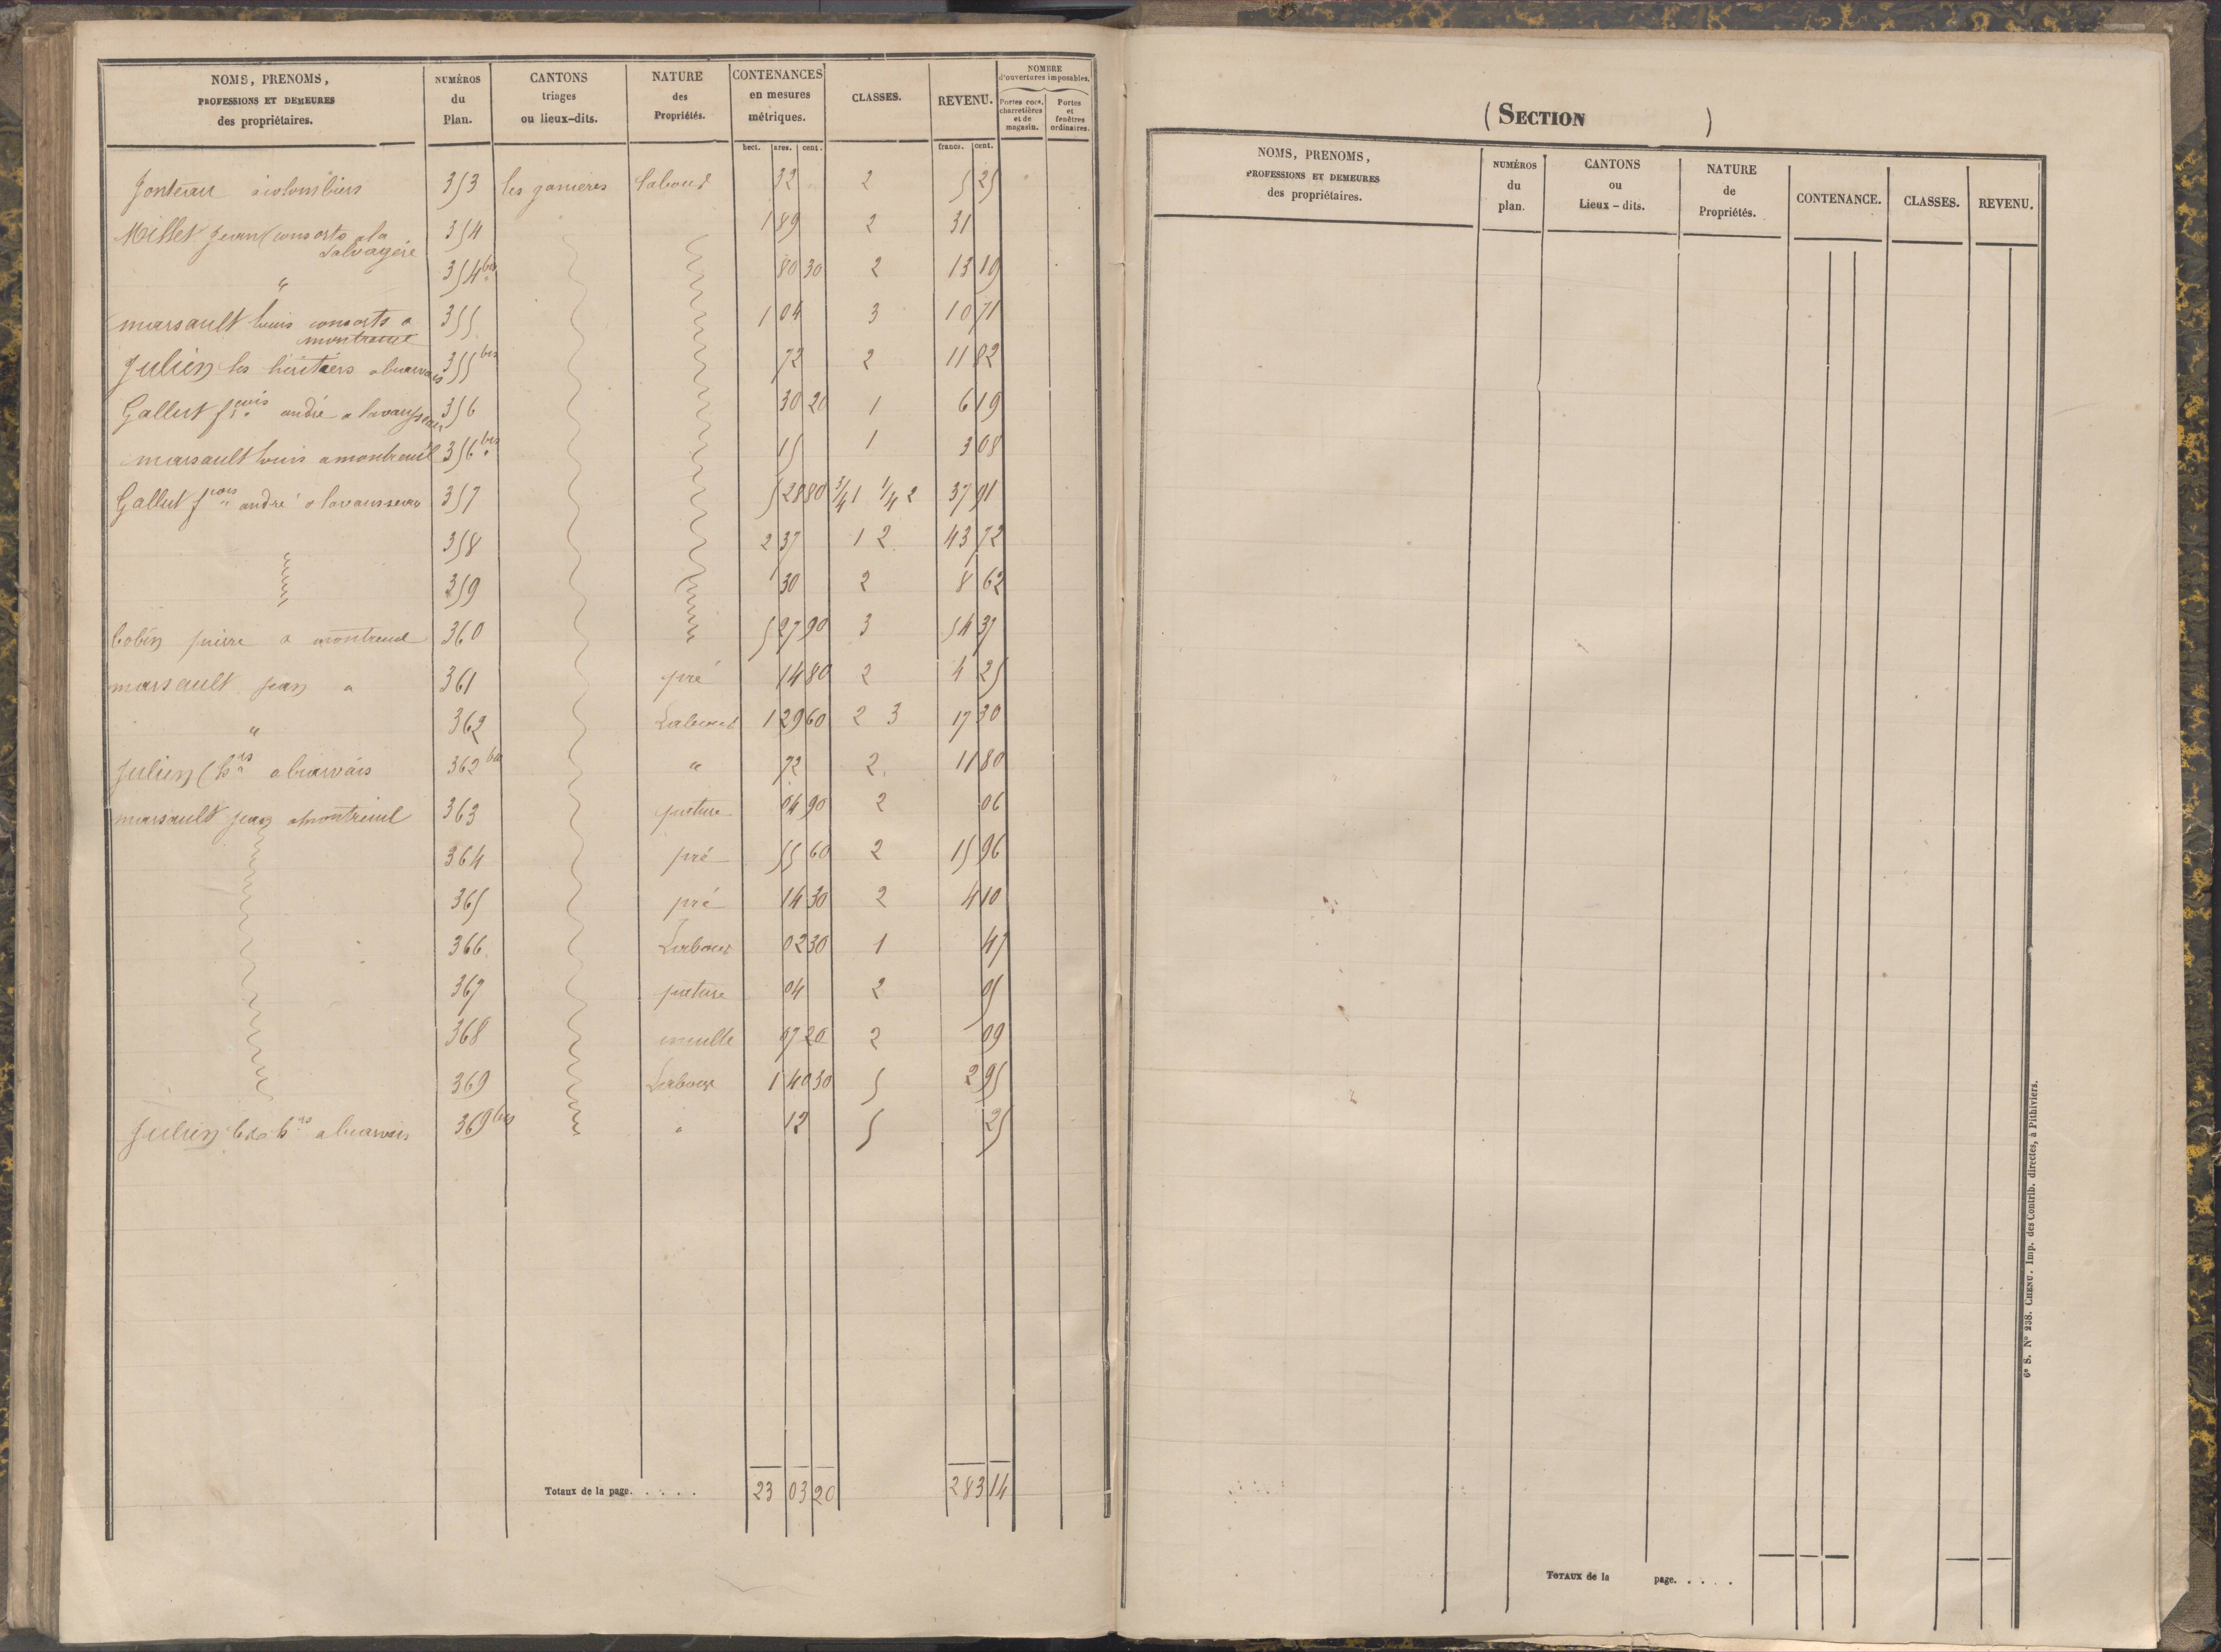 NOMS, PRENOMS, PROFESSIONS ET DEMEURES des propriétaires. NUMÉROS du Plan. CANTONS triages ou lieux-dits. NATURE des Propriétés. CONTENANCES en mesures métriques. CLASSES. REVENU. NOMBRE d'ouvertures imposables.
Portes coch. charretières et de magasin. Portes et fenêtres ordinaires.
hect. ares. cent. francs. cent.
353 les garnieres labour 32 2 5 25
Millet jean consorts a la 354 1 89 2 31
Salvagere
" 354 bis 80 30 2 13 19
marsault louis consorts a 355 1 04 3 10 71
montreuil
Julien les héritiers a 355 bis 72 2 11 82
Gallut fcois andré a lavausseau 356 30 20 1 6 19
marsault louis a montreuil 356 bis 15 1 3 08
Gallut fcois andré a lavausseau 357 5 28 80 3/4 1 1/4 2 37 91
358 2 37 1 2 43 72
359 30 2 8 62
bobin pierre a montreuil 360 5 27 90 3 54 37
marsault jean a 361 pré 14 80 2 4 25
" 362 Labour 1 29 60 2 3 17 30
Julien 362 bis " 72 2 11 80
marsault jean a montreuil 363 pature 04 90 2 06
364 pré 55 60 2 15 96
365 pré 14 30 2 4 10
366 Labour 02 30 1 47
367 pature 04 2 05
368 07 20 2 09
369 Labour 1 40 30 5 2 95
Julien 369 bis " 12 5 25
Totaux de la page. . . . . . 23 03 20 283 14
(SECTION )
NOMS, PRENOMS, PROFESSIONS ET DEMEURES des propriétaires. NUMÉROS du plan. CANTONS ou Lieux-dits. NATURE de Propriétés. CONTENANCE. CLASSES. REVENU.
TOTAUX de la page. . . . .
6e S. No 238. CHENU. Imp. des Contrib. directes, à Pithiviers.